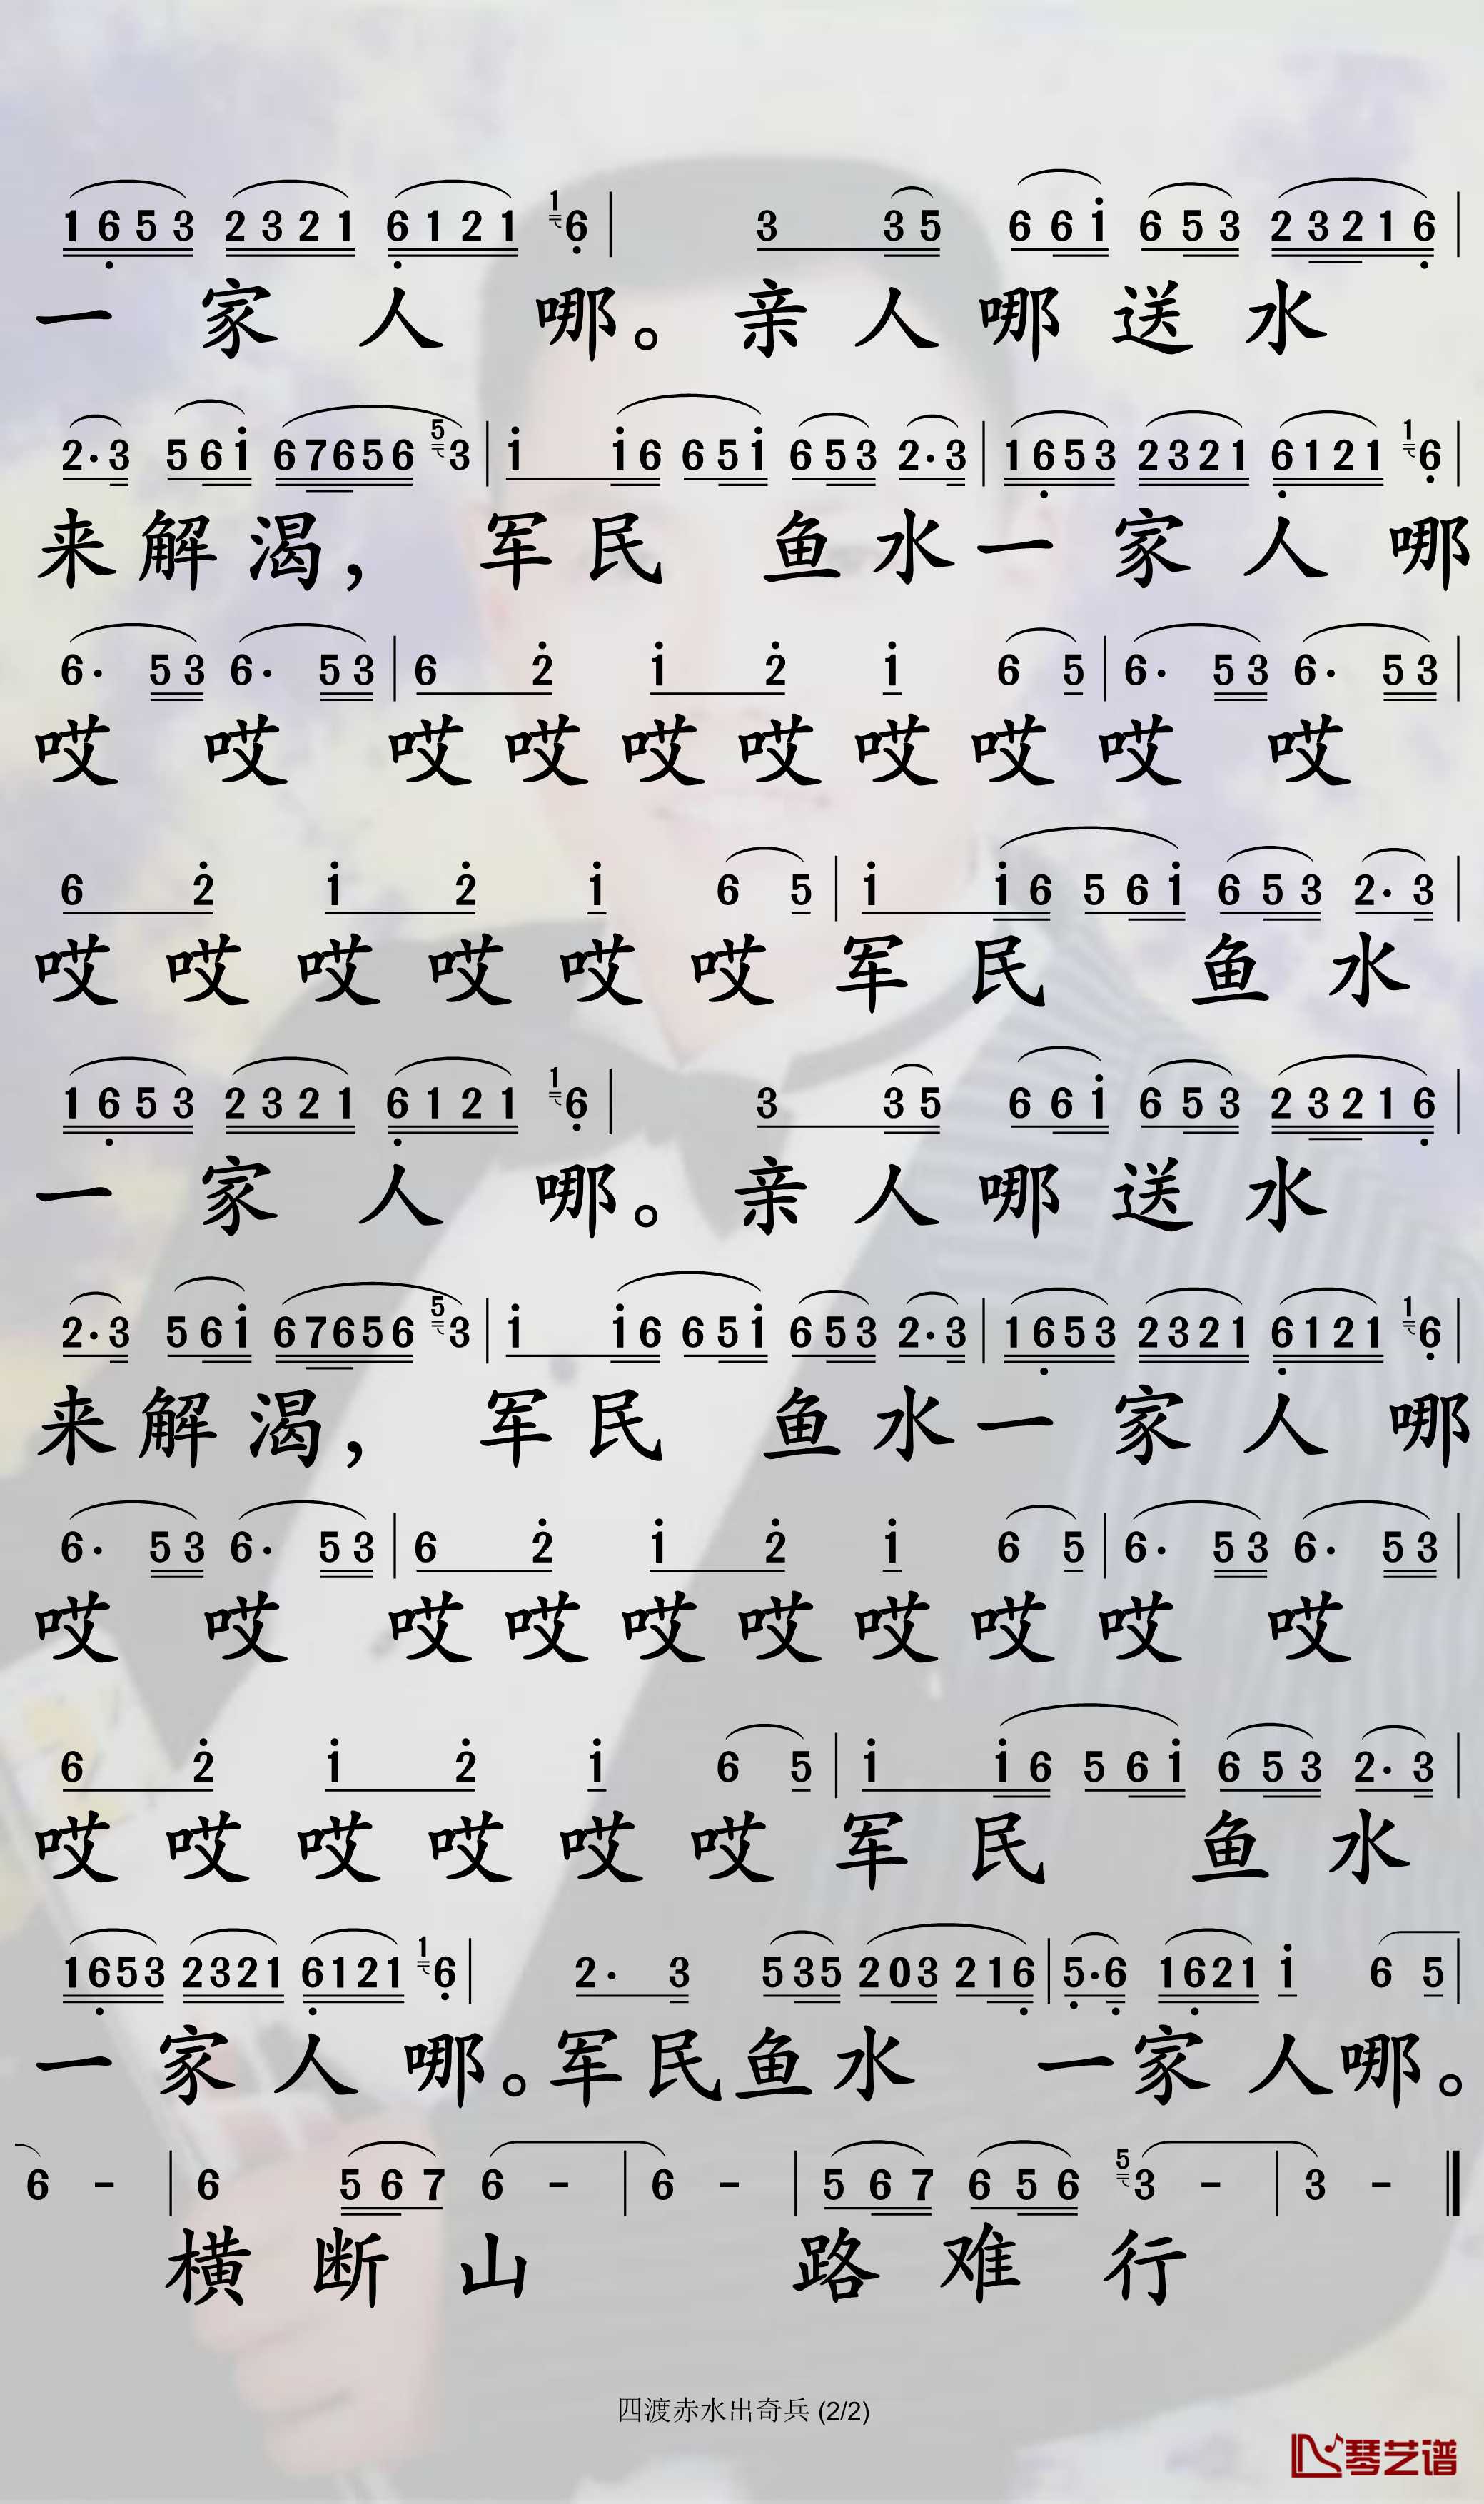 1653 2321 6121 16 | 3 35 66i 653 23216 |
一家人哪。亲人哪送水
2·3 56i 67656 53 | i i6 65i 653 2·3 | 1653 2321 6121 16 |
来解渴，军民鱼水一家人哪
6· 53 6· 53 | 6 2 i 2 i 6 5 | 6· 53 6· 53 |
哎哎哎哎哎哎哎哎哎哎
6 2 i 2 i 6 5 | i i6 56i 653 2·3 |
哎哎哎哎哎哎军民鱼水
1653 2321 6121 16 | 3 35 66i 653 23216 |
一家人哪。亲人哪送水
2·3 56i 67656 53 | i i6 65i 653 2·3 | 1653 2321 6121 16 |
来解渴，军民鱼水一家人哪
6· 53 6· 53 | 6 2 i 2 i 6 5 | 6· 53 6· 53 |
哎哎哎哎哎哎哎哎哎哎
6 2 i 2 i 6 5 | i i6 56i 653 2·3 |
哎哎哎哎哎哎军民鱼水
1653 2321 6121 16 | 2· 3 535 203 216 | 5·6 1621 i 6 5 |
一家人哪。军民鱼水一家人哪。
6 - | 6 567 6 - | 6 - | 567 656 53 - | 3 - ‖
横断山路难行
四渡赤水出奇兵 (2/2)
琴艺谱